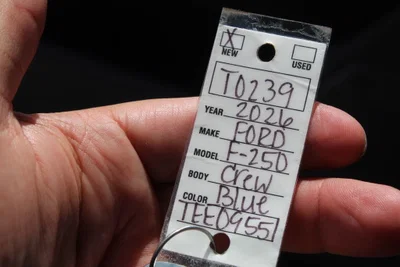 X
NEW USED
T0239
YEAR 2026
MAKE FORD
MODEL F-250
BODY Crew
COLOR Blue
TEE0955